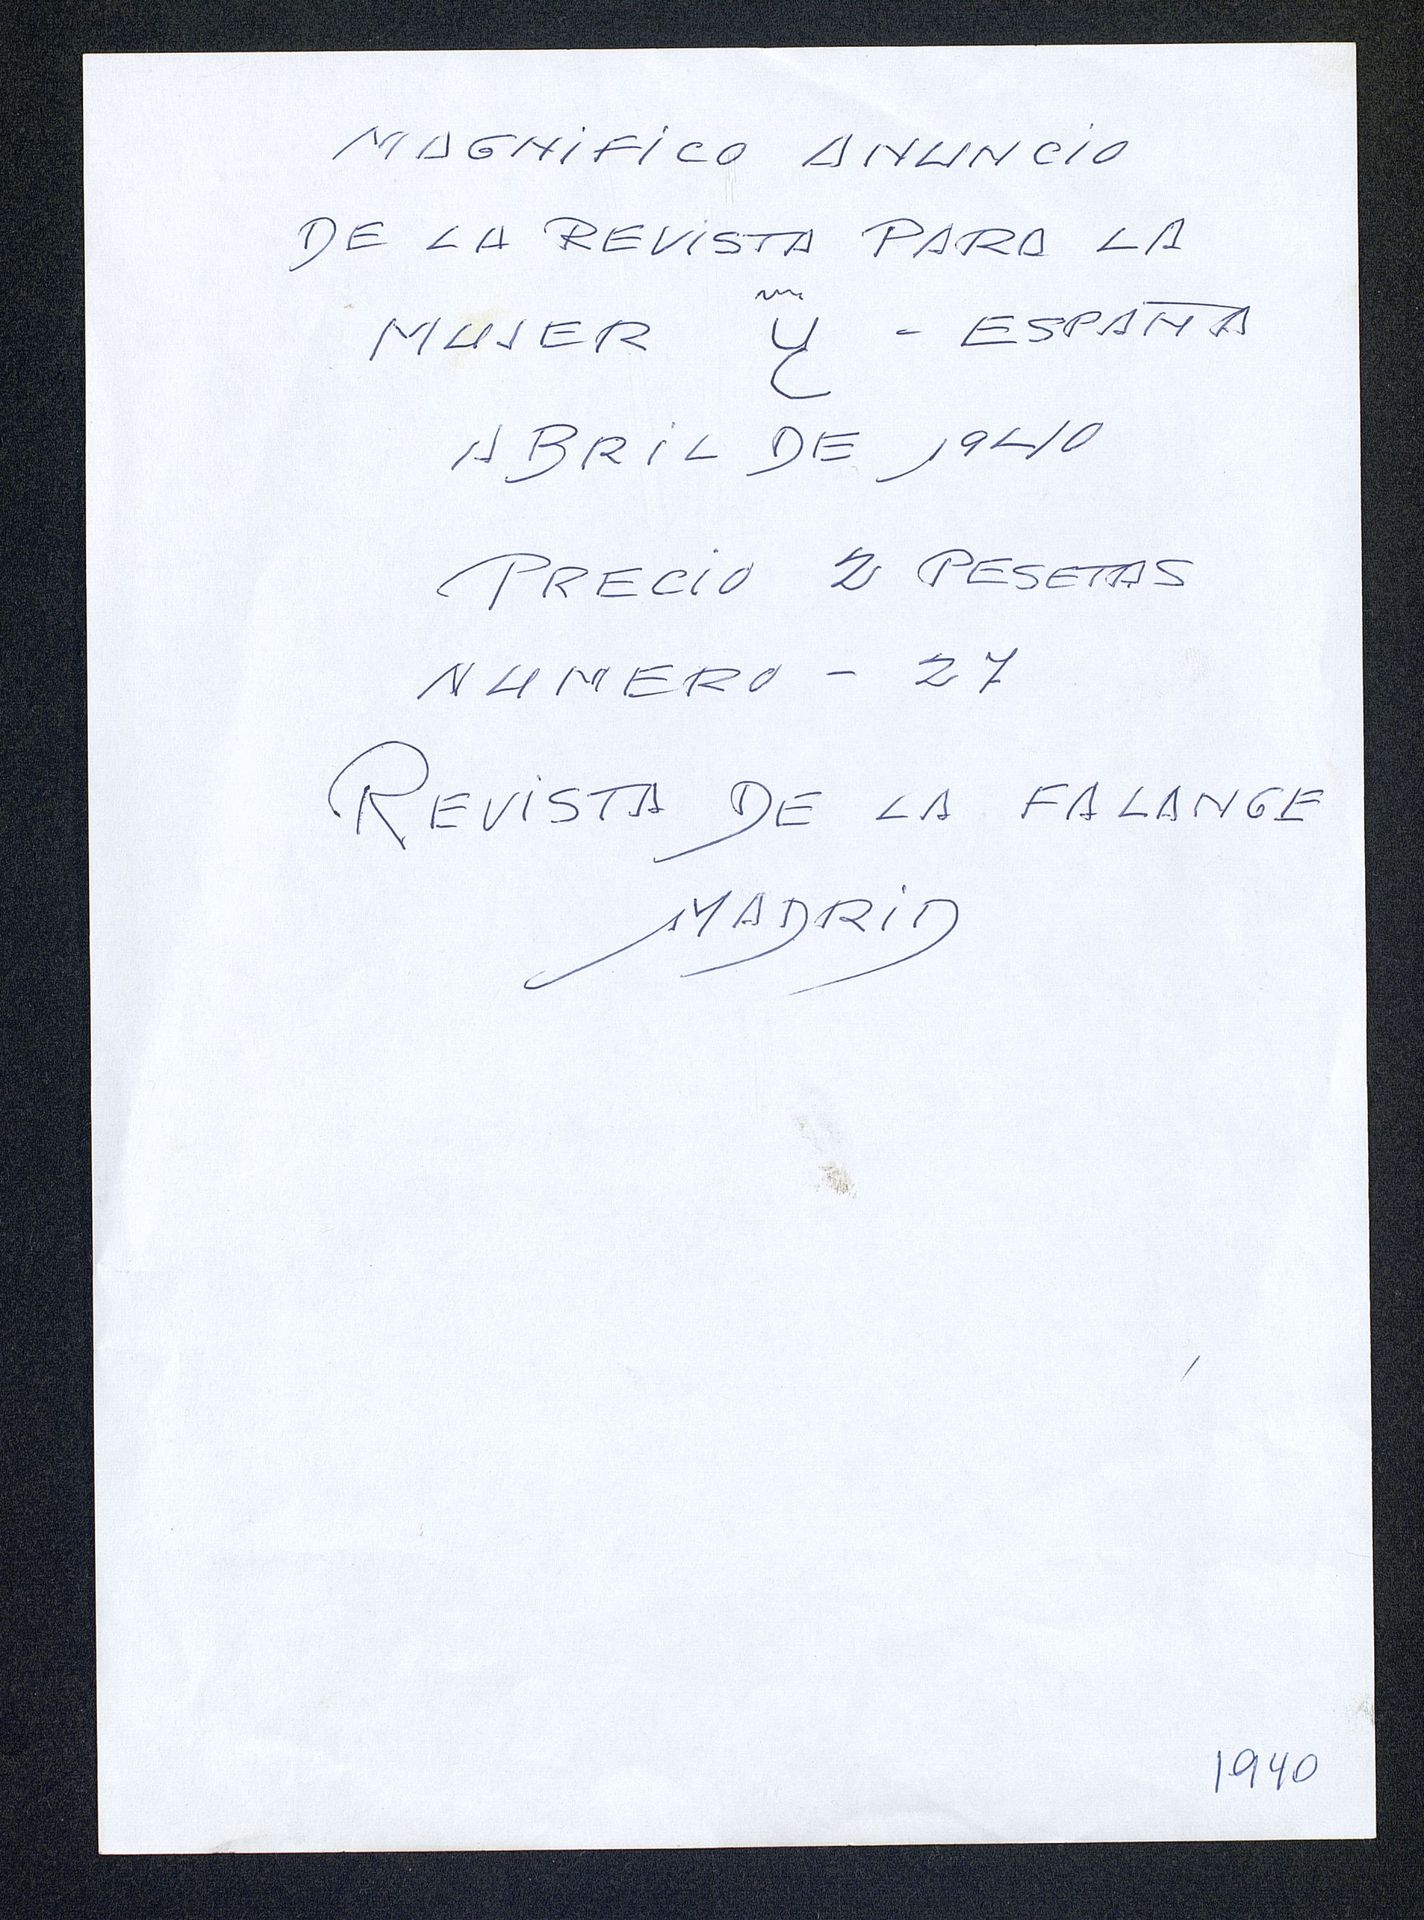 MAGNIFICO ANUNCIO
DE LA REVISTA PARA LA
MUJER Y - ESPAÑA
ABRIL DE 1940
PRECIO 2 PESETAS
NUMERO - 27
REVISTA DE LA FALANGE
MADRID
1940